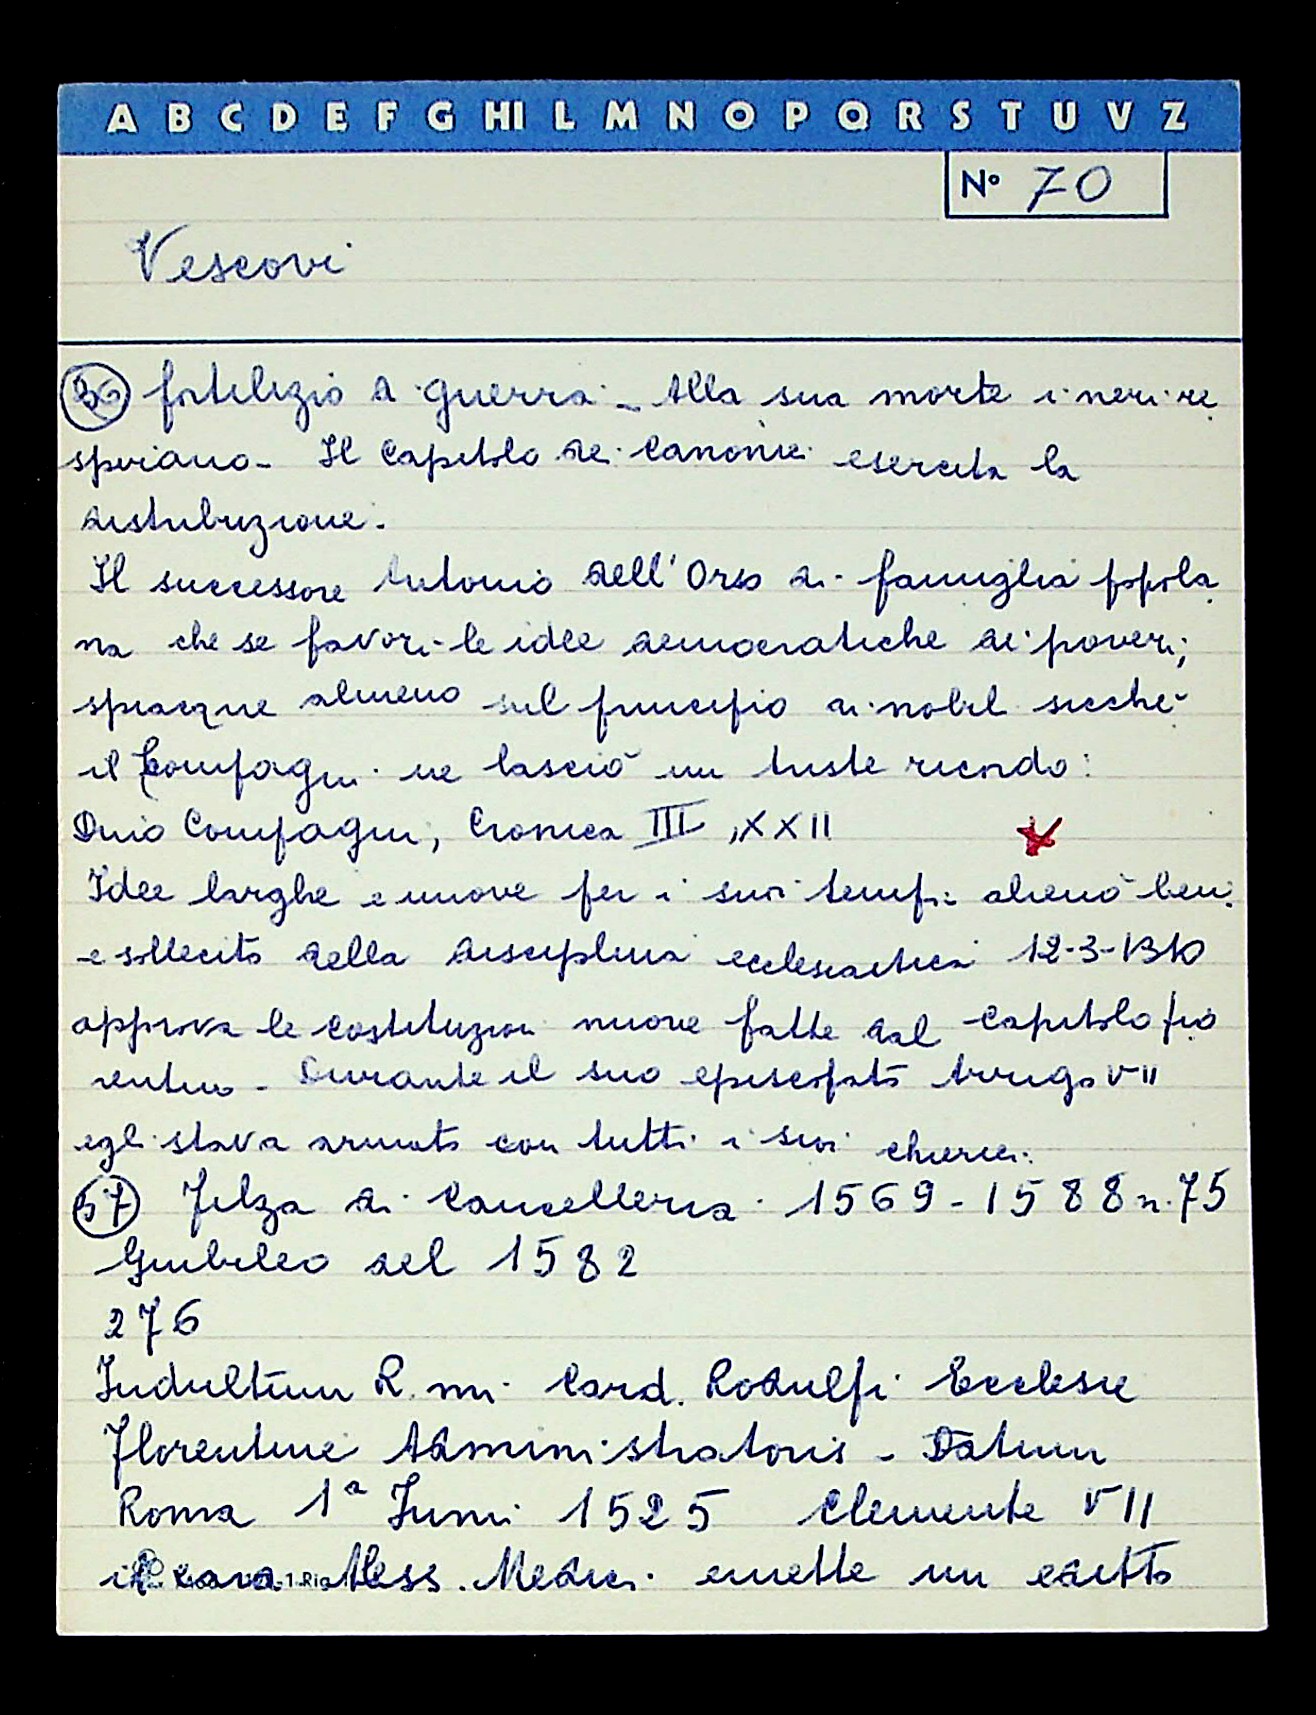 A B C D E F G HI L M N O P Q R S T U V Z
N° 70
Vescovi
56 fortilizio di guerra - Alla sua morte i neri re
spirano - Il Capitolo dei Canonici esercita la
distribuzione.
Il successore Antonio dell'Orso di famiglia popola
na che se favorì le idee democratiche dei poveri;
spiacque almeno sul principio ai nobil sicchè
il Compagni ne lasciò un triste ricordo:
Dino Compagni, Cronica III, XXII
Idee larghe e nuove per i suoi tempi alienò beni
e sollecito della disciplina ecclesiastica 12-3-1310
approva le costituzioni nuove fatte dal Capitolo fio
rentino - Durante il suo episcopato Arrigo VII
egli stava armato con tutti i suoi chierici.
57 Filza di Cancelleria 1569-1588 n. 75
Giubileo del 1582
276
Indultum R.mi Card. Rodulfi Ecclesie
Florentine Administratoris - Datum
Roma 1ª Iunii 1525 Clemente VII
Aless. Medici emette un editto